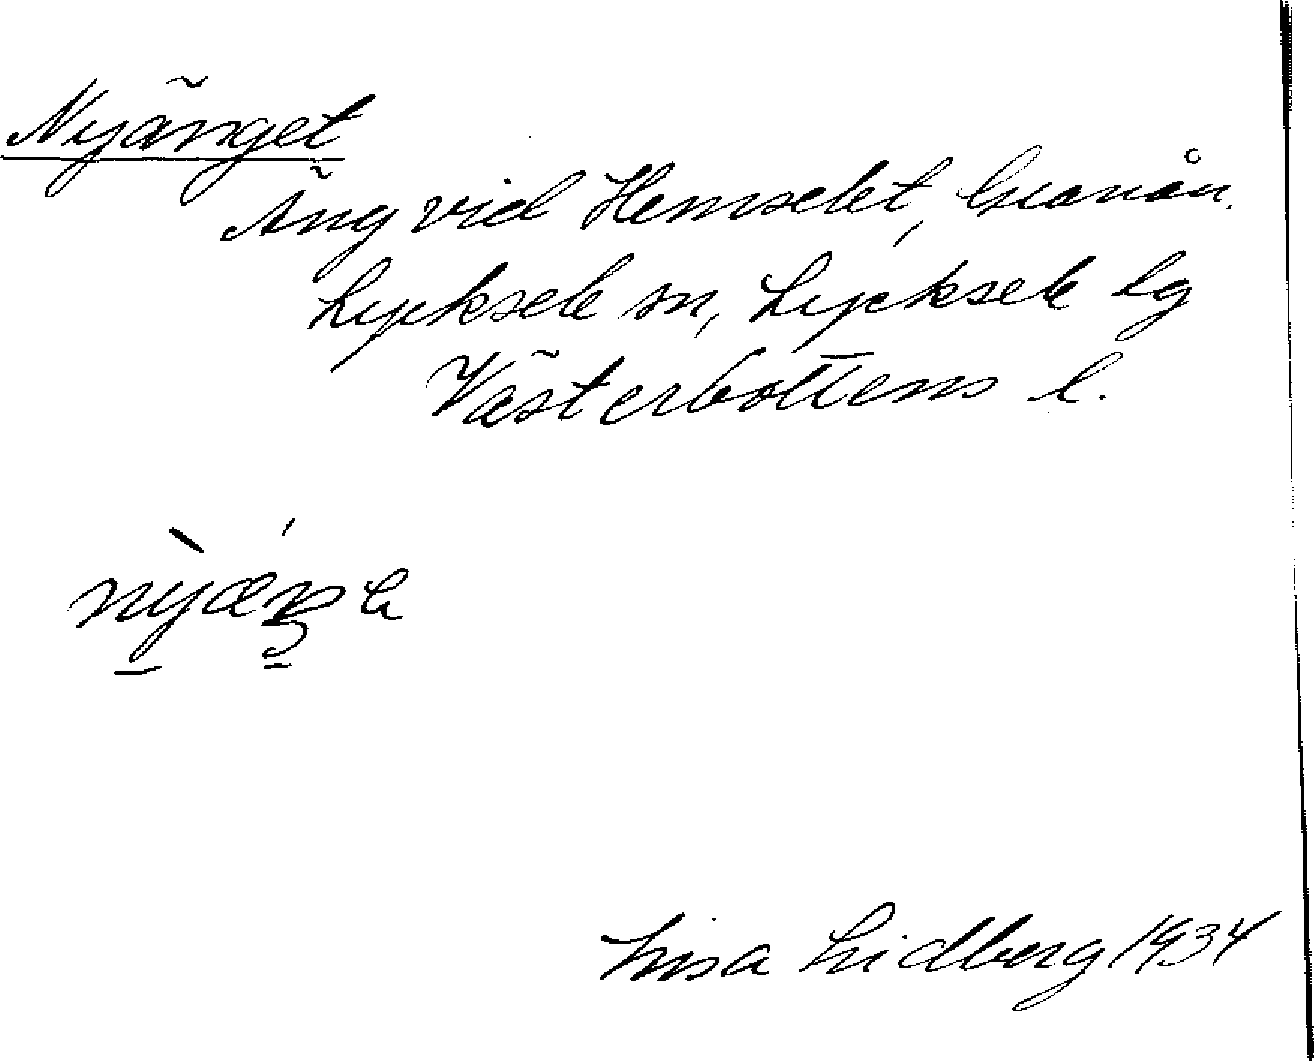 Nyänget
Äng vid Hemselet, Granån.
Lycksele sn, Lycksele lg
Västerbottens l.
Lisa Lidberg 1934